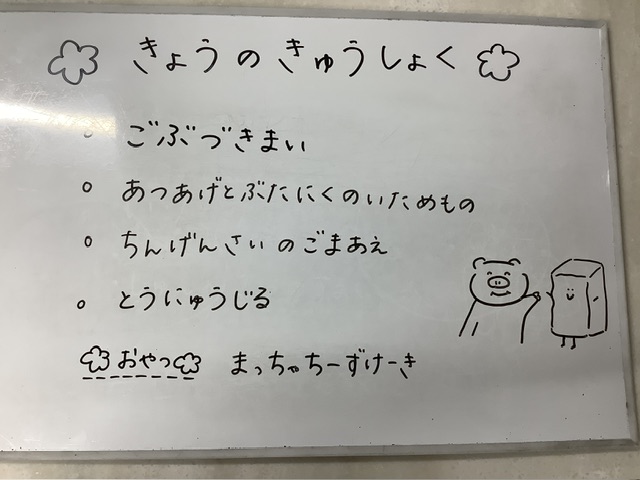 きょうのきゅうしょく
ごぶづきまい
あつあげとぶたにくのいためもの
ちんげんさいのごまあえ
とうにゅうじる
おやつ まっちゃちーずけーき